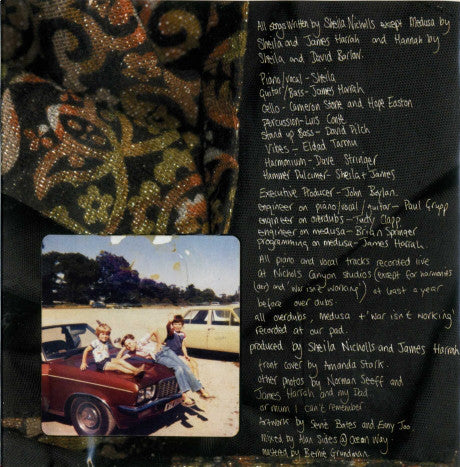 All songs written by Sheila Nicholls except Medusa by
Sheila and James Harrah and Hannah by
Sheila and David Barlow.
Piano/vocal - Sheila
Guitar/Bass - James Harrah
Cello - Cameron Stone and Hope Easton
Percussion - Luis Conte
Stand up Bass - David Piltch
Vibes - Eldad Tarmu
Harmonium - Dave Stringer
Hammer Dulcimer - Sheila + James
Executive Producer - John Baylan
engineer on piano/vocal/guitar - Paul Grupp
engineer on overdubs - Tudy Clapp
engineer on medusa - Brian Springer
programming on medusa - James Harrah.
All piano and vocal tracks recorded live
at Nichols Canyon studios (except for harmonies
and 'war isn't working') at least a year
before over dubs.
all overdubs, medusa + 'war isn't working'
recorded at our pad.
produced by Sheila Nicholls and James Harrah
front cover by Amanda Stark.
other photos by Norman Seeff and
James Harrah and my Dad.
or mum I can't remember
Artwork by Bates and
Mixed by Alan Sides @ Ocean Way.
mastered by Bernie Grundman.